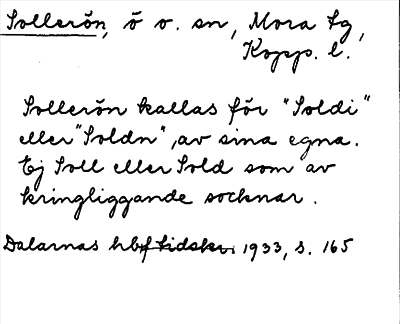 Sollerön, ö o. sn, Mora tg,
Kopp. l.
Sollerön kallas för "Soldi"
eller "Soldn", av sina egna.
Ej Soll eller Sold som av
kringliggande socknar.
Dalarnas hbf tidskr. 1933, s. 165